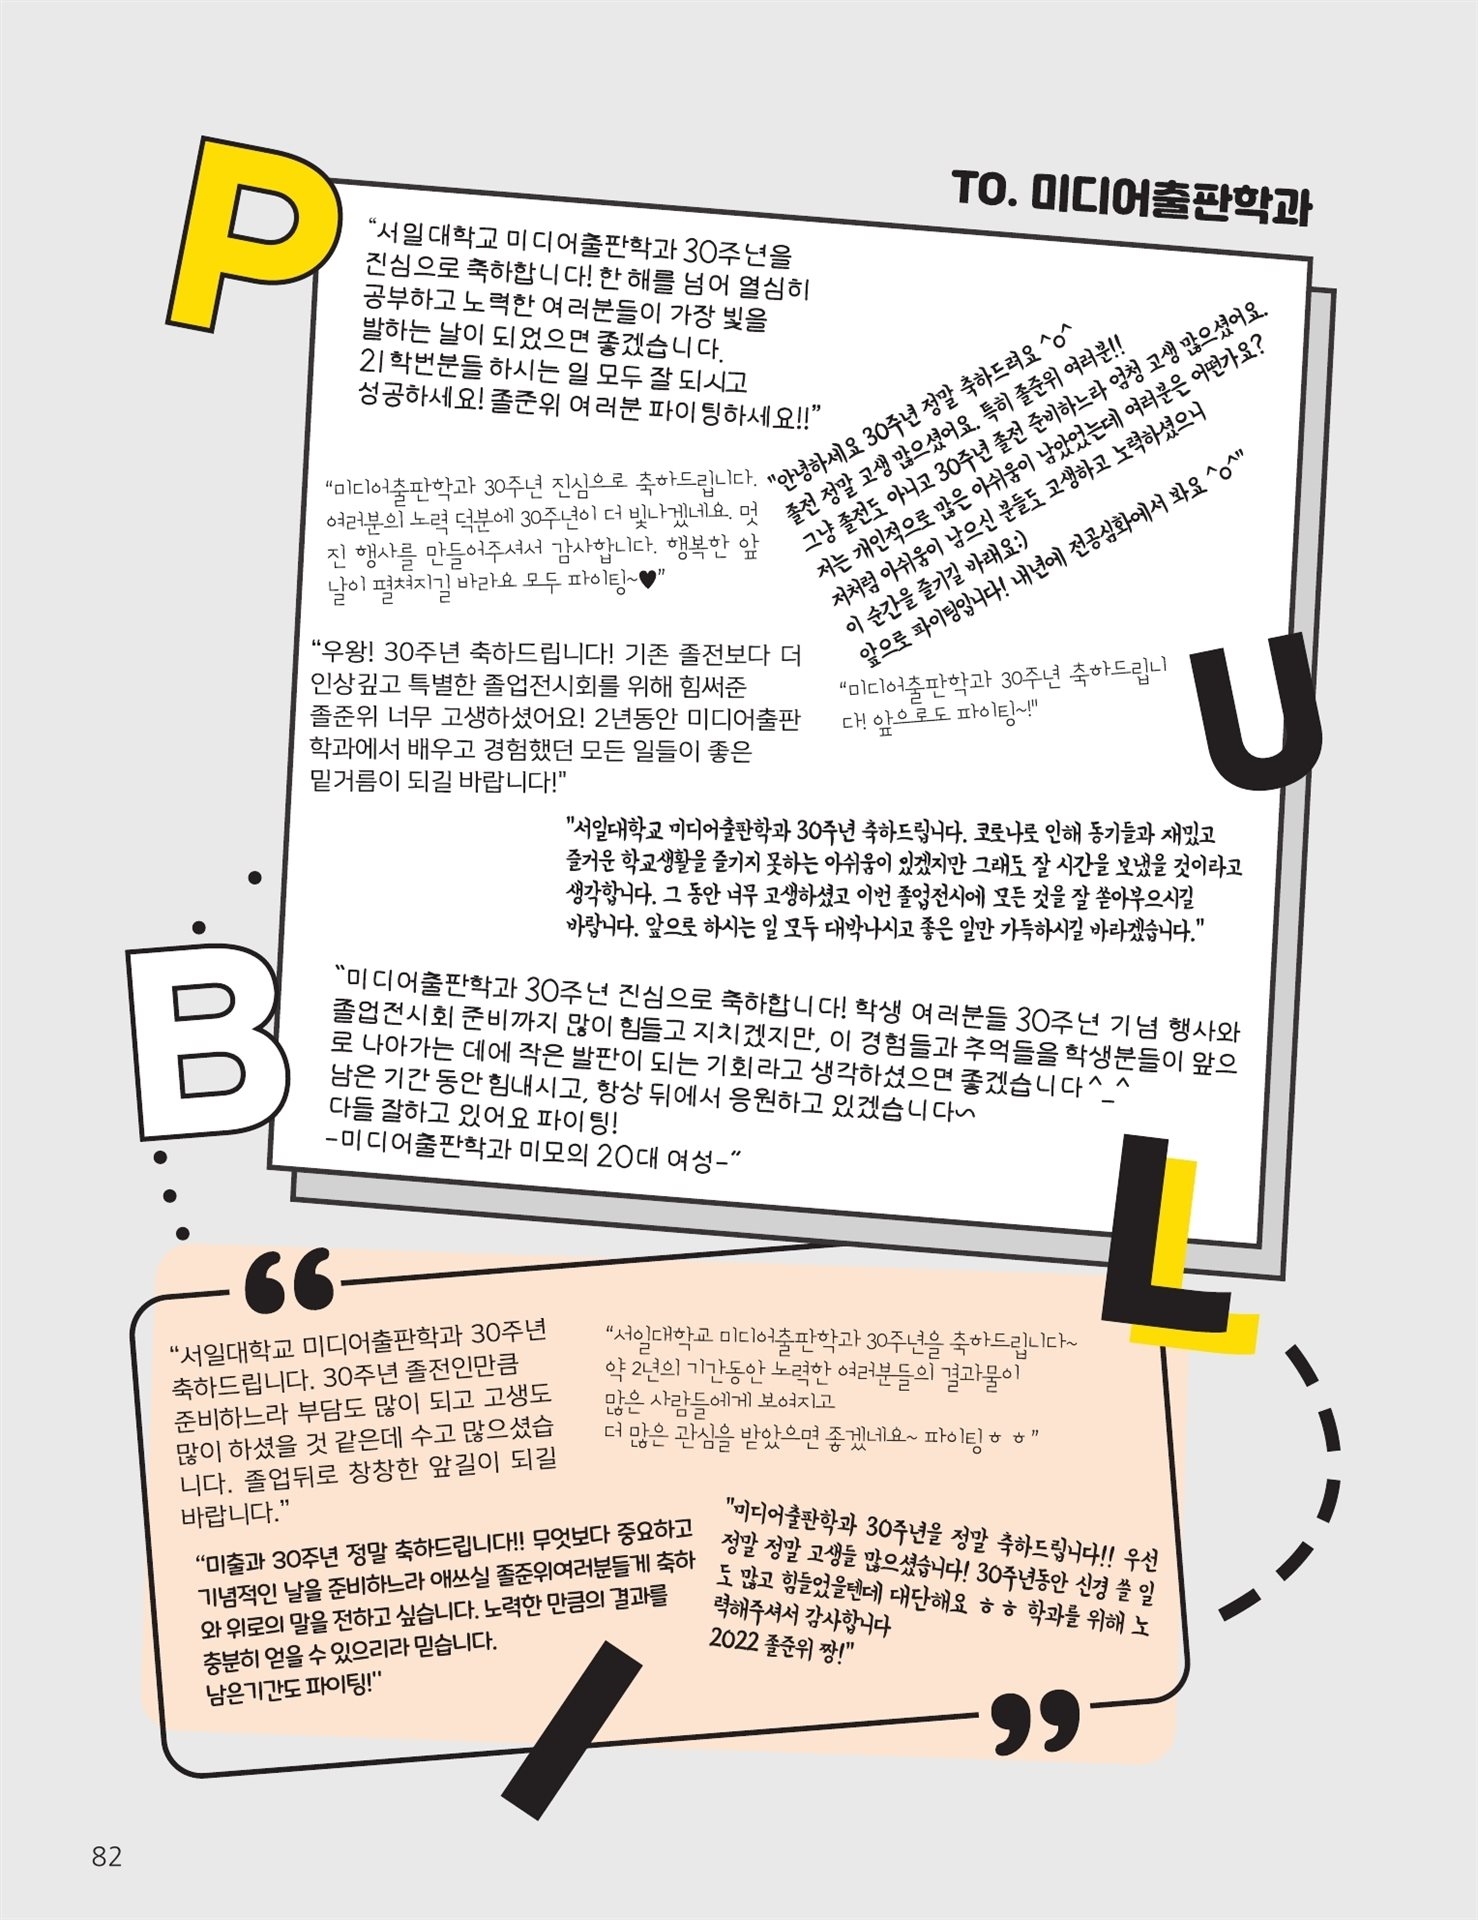 P
TO. 미디어출판학과
“서일대학교 미디어출판학과 30주년을
진심으로 축하합니다! 한 해를 넘어 열심히
공부하고 노력한 여러분들이 가장 빛을
발하는 날이 되었으면 좋겠습니다.
21학번분들 하시는 일 모두 잘 되시고
성공하세요! 졸준위 여러분 파이팅하세요!!”
"안녕하세요 30주년 정말 축하드려요^o^
졸전 정말 고생 많으셨어요. 특히 졸준위 여러분!!
그냥 졸전도 아니고 30주년 졸전 준비하느라 엄청 고생 많으셨어요.
저는 개인적으로 많은 아쉬움이 남았었는데 여러분은 어떤가요?
저처럼 아쉬움이 남으신 분들도 고생하고 노력하셨으니
이 순간을 즐기길 바래요:)
앞으로 파이팅입니다! 내년에 전공심화에서 봐요^o^"
“미디어출판학과 30주년 진심으로 축하드립니다.
여러분의 노력 덕분에 30주년이 더 빛나겠네요. 멋
진 행사를 만들어주셔서 감사합니다. 행복한 앞
날이 펼쳐지길 바라요 모두 파이팅~♥”
“우왕! 30주년 축하드립니다! 기존 졸전보다 더
인상깊고 특별한 졸업전시회를 위해 힘써준
졸준위 너무 고생하셨어요! 2년동안 미디어출판
학과에서 배우고 경험했던 모든 일들이 좋은
밑거름이 되길 바랍니다!"
“미디어출판학과 30주년 축하드립니
다! 앞으로도 파이팅~!"
U
"서일대학교 미디어출판학과 30주년 축하드립니다. 코로나로 인해 동기들과 재밌고
즐거운 학교생활을 즐기지 못하는 아쉬움이 있겠지만 그래도 잘 시간을 보냈을 것이라고
생각합니다. 그 동안 너무 고생하셨고 이번 졸업전시에 모든 것을 잘 쏟아부으시길
바랍니다. 앞으로 하시는 일 모두 대박나시고 좋은 일만 가득하시길 바라겠습니다."
B
“미디어출판학과 30주년 진심으로 축하합니다! 학생 여러분들 30주년 기념 행사와
졸업전시회 준비까지 많이 힘들고 지치겠지만, 이 경험들과 추억들을 학생분들이 앞으
로 나아가는 데에 작은 발판이 되는 기회라고 생각하셨으면 좋겠습니다^_^
남은 기간 동안 힘내시고, 항상 뒤에서 응원하고 있겠습니다~
다들 잘하고 있어요 파이팅!
-미디어출판학과 미모의 20대 여성-”
L
“서일대학교 미디어출판학과 30주년
축하드립니다. 30주년 졸전인만큼
준비하느라 부담도 많이 되고 고생도
많이 하셨을 것 같은데 수고 많으셨습
니다. 졸업뒤로 창창한 앞길이 되길
바랍니다.”
“서일대학교 미디어출판학과 30주년을 축하드립니다~
약 2년의 기간동안 노력한 여러분들의 결과물이
많은 사람들에게 보여지고
더 많은 관심을 받았으면 좋겠네요~ 파이팅ㅎㅎ”
“미출과 30주년 정말 축하드립니다!! 무엇보다 중요하고
기념적인 날을 준비하느라 애쓰실 졸준위여러분들게 축하
와 위로의 말을 전하고 싶습니다. 노력한 만큼의 결과를
충분히 얻을 수 있으리라 믿습니다.
남은기간도 파이팅!"
"미디어출판학과 30주년을 정말 축하드립니다!! 우선
정말 정말 고생들 많으셨습니다! 30주년동안 신경 쓸 일
도 많고 힘들었을텐데 대단해요 ㅎㅎ 학과를 위해 노
력해주셔서 감사합니다
2022 졸준위 짱!"
I
82